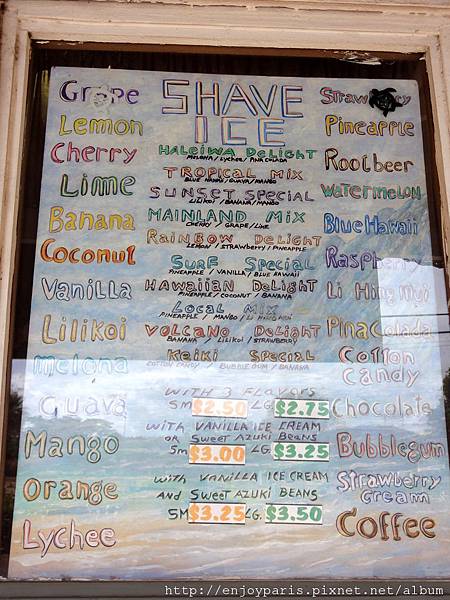 SHAVE
ICE
Grape
Lemon
Cherry
Lime
Banana
Coconut
Vanilla
Lilikoi
melona
Guava
Mango
Orange
Lychee
HALEIWA DELIGHT
MELONA / Lychee / PINA COLADA
TROPICAL MIX
BLUE HAWAII / GUAVA / MANGO
SUNSET SPECIAL
LILIKOI / BANANA / MANGO
MAINLAND MIX
CHERRY / GRAPE / LIME
RAINBOW DELIGHT
LEMON / STRAWBERRY / PINEAPPLE
SURF SPECIAL
PINEAPPLE / VANILLA / BLUE HAWAII
HAWAIIAN DELIGHT
PINEAPPLE / COCONUT / BANANA
LOCAL MIX
PINEAPPLE / MANGO / LI HING MUI
VOLCANO DELIGHT
BANANA / LILIKOI / STRAWBERRY
KEIKI SPECIAL
COTTON CANDY / BUBBLE GUM / BANANA
WITH 3 FLAVORS
SM $2.50 LG. $2.75
WITH VANILLA ICE CREAM
OR SWEET AZUKI BEANS
SM $3.00 LG. $3.25
WITH VANILLA ICE CREAM
AND SWEET AZUKI BEANS
SM $3.25 LG. $3.50
Strawberry
Pineapple
Rootbeer
Watermelon
Blue Hawaii
Raspberry
Li Hing Mui
PinaColada
Cotton
Candy
Chocolate
Bubblegum
Strawberry
Cream
Coffee
http://enjoyparis.pixnet.net/album